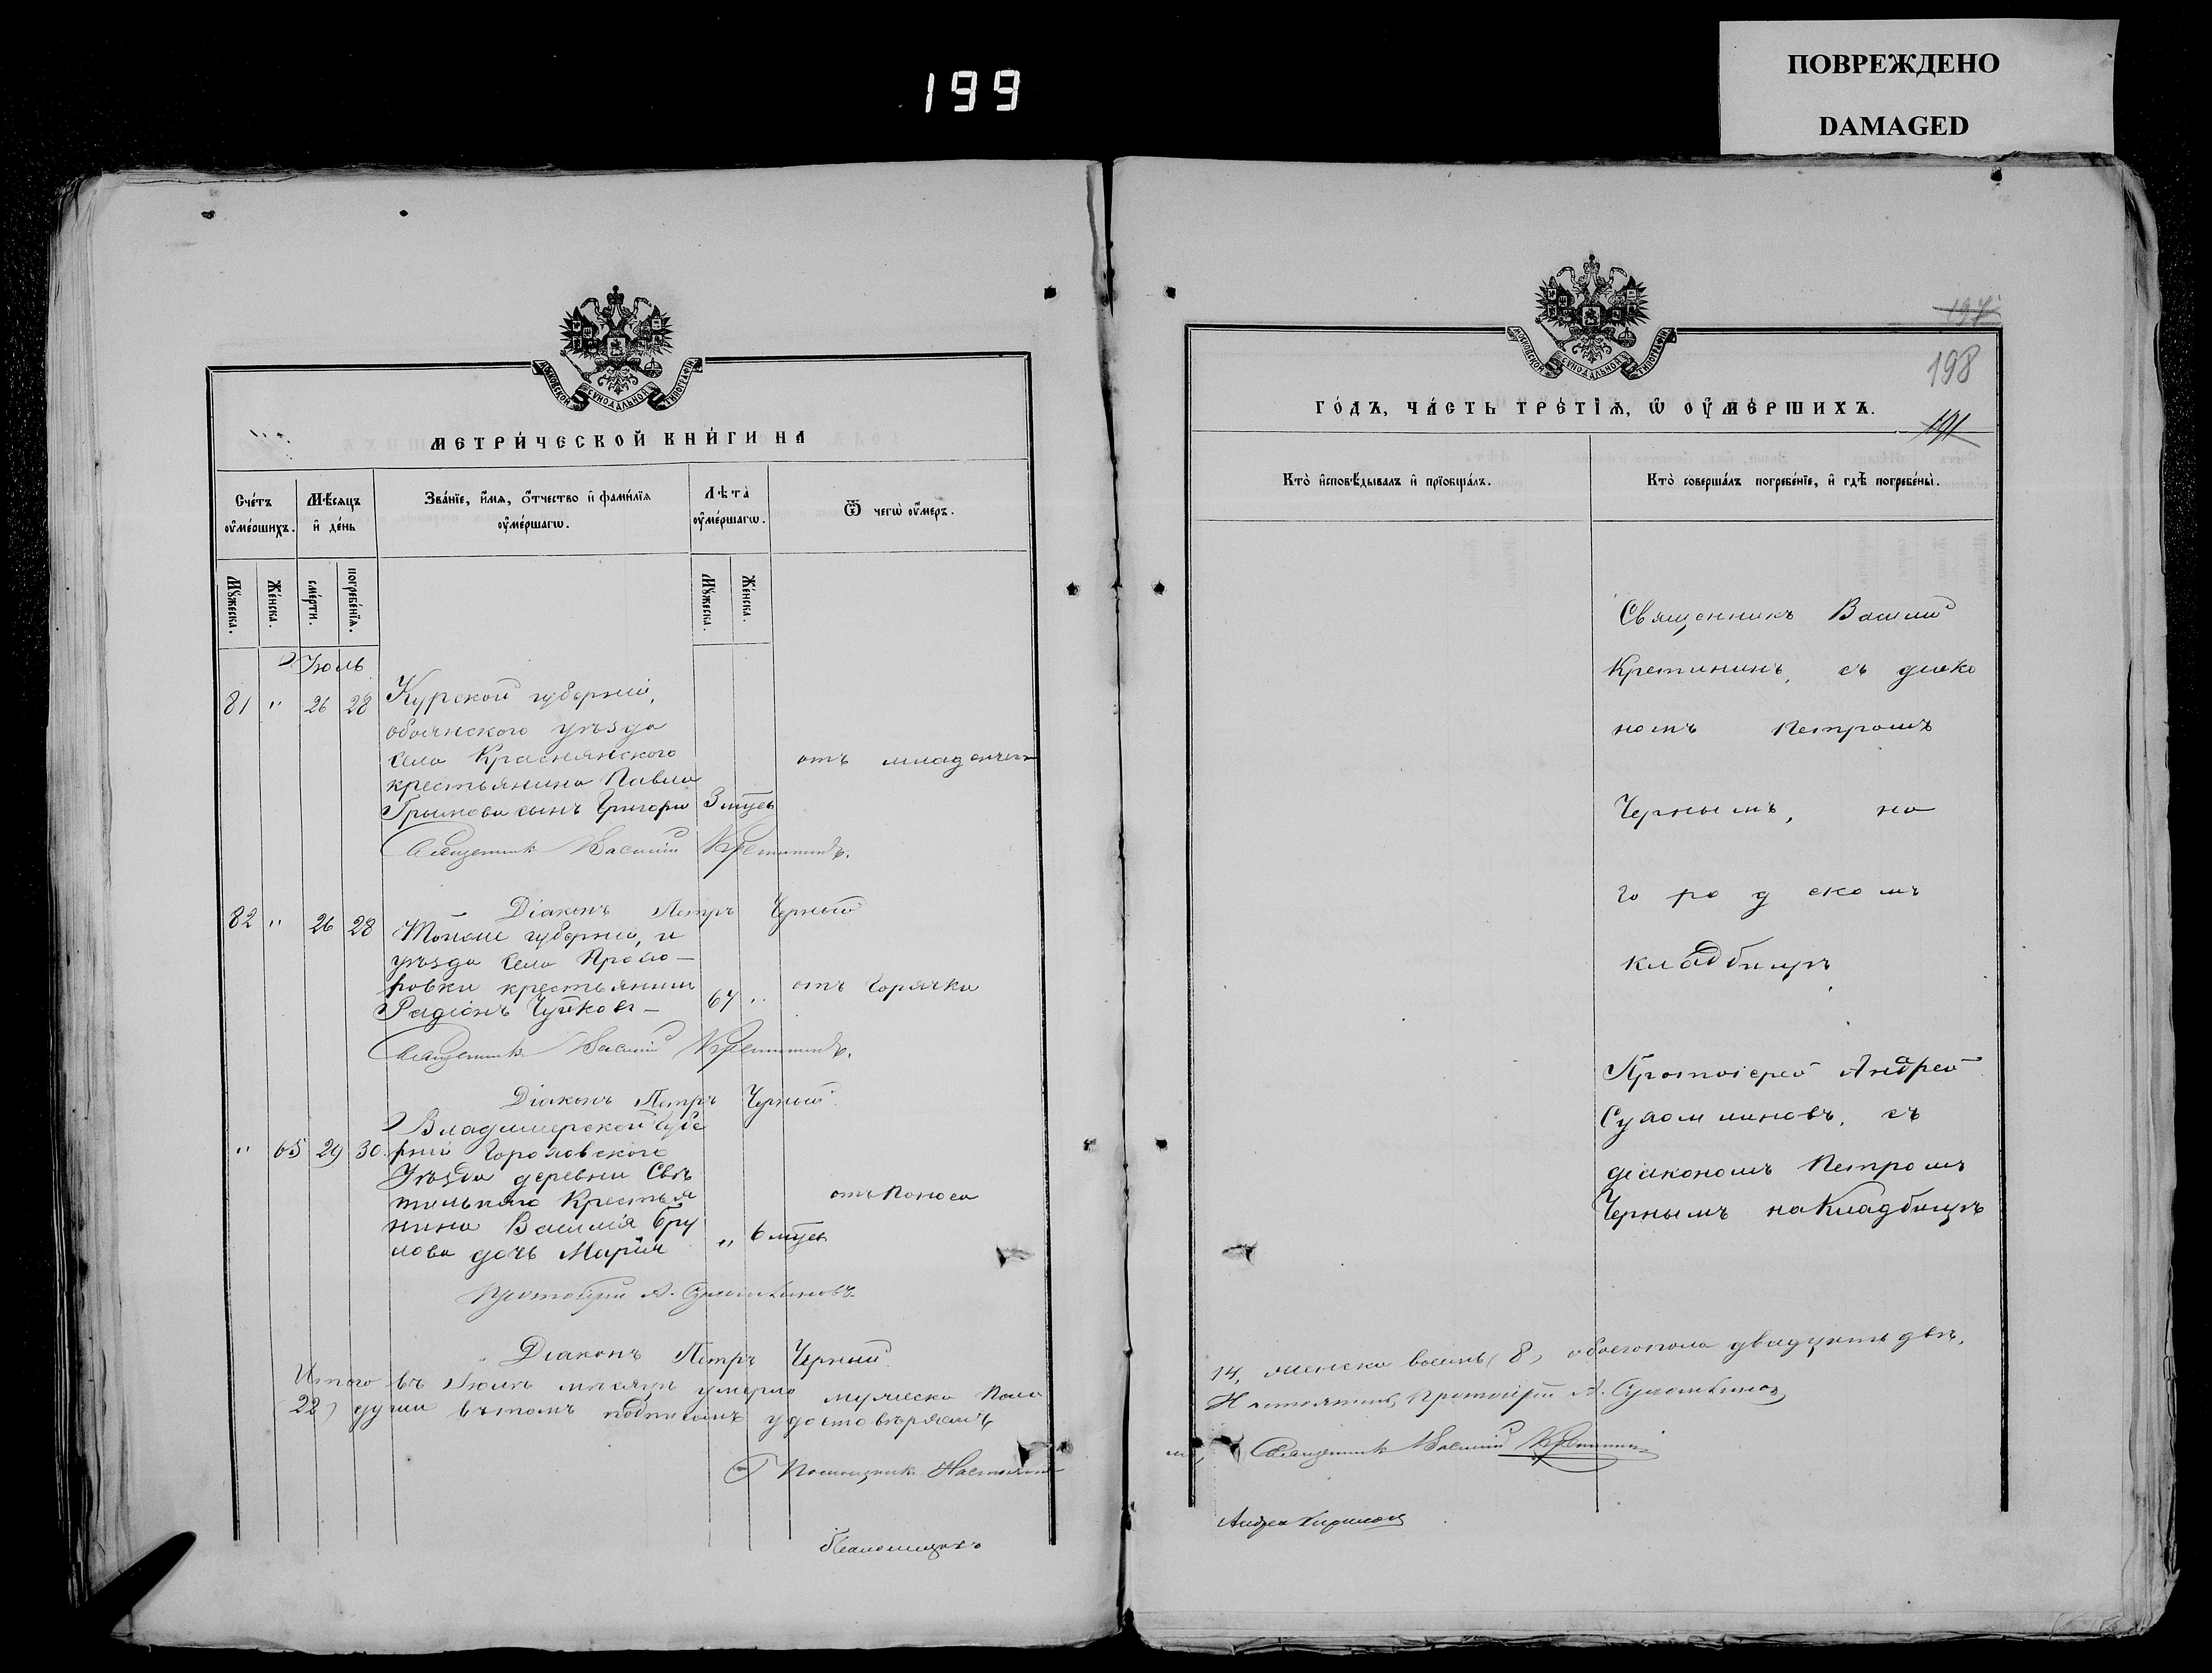 199
ПОВРЕЖДЕНО
DAMAGED
МОСКОВСКОЙ СѴНОДАЛЬНОЙ ТИПОГРАФІИ
МЕТРИ́ЧЕСКОЙ КНИ́ГИ НА
Сче́тъ ᲂу҆ме́ршихъ.
Мѣ́сяцъ и҆ де́нь
Зва́нїе, и҆́мя, ѻ҆́тчество и҆ фами́лїя ᲂу҆ме́ршагѡ.
Лѣта̀ ᲂу҆ме́ршагѡ.
Ѿ чегѡ̀ ᲂу҆́меръ.
Мꙋ́жеска.
Же́нска.
сме́рти.
погребе́нїѧ.
Мꙋ́жеска.
Же́нска.
Іюль
81 " 26 28 Курской губерніи,
обоянского уѣзда
села Краснянского
крестьянина Павла
сынъ Григори 3 мцсъ
отъ младенчес
Священникъ Василій Кретининъ.
Діаконъ Петръ Черный
82 " 26 28 Тойже губерніи, и
уѣзда села Прохо-
ровки крестьянинъ
Радіонъ 67 " отъ горячки
Священникъ Василій Кретининъ.
Діаконъ Петръ Черный.
" 65 29 30 Владимерской Губе
рніи Гороховского
Уѣзда деревни Свѣ
тильнаго Крестья
нина Василія Бру
лова дочь Марія " 6 мцсъ
отъ Поноса
Протоіерей А. Сухомлиновъ
Діаконъ Петръ Черный.
Итого въ Іюлѣ мѣсяцѣ умерло мужеска пола
22) души въ томъ подписомъ удостовѣряемъ
Помощникъ Настоятел
Псаломщикъ
197
198
191
МОСКОВСКОЙ СѴНОДАЛЬНОЙ ТИПОГРАФІИ
ГО́ДЪ, ЧА́СТЬ ТРЕ́ТЇЯ, Ѡ҆ ᲂУ҆МЕ́РШИХЪ.
Кто̀ и҆сповѣ́дывалъ и҆ прїѡбща́лъ.
Кто̀ соверша́лъ погребе́нїе, и҆ гдѣ̀ погребены̀.
Священникъ Василій
Кретининъ, съ діако
номъ Петромъ
Чернымъ, на
городскомъ
кладбищѣ
Протоіерей Андрей
Сухомлиновъ, съ
діакономъ Петромъ
Чернымъ на Кладбищѣ
14, женска восемь (8) обоегопола двадцать двѣ.
Настоятель, протоіерей А. Сухомлиновъ
Священникъ Василій Кретининъ
Андрей Кириловъ